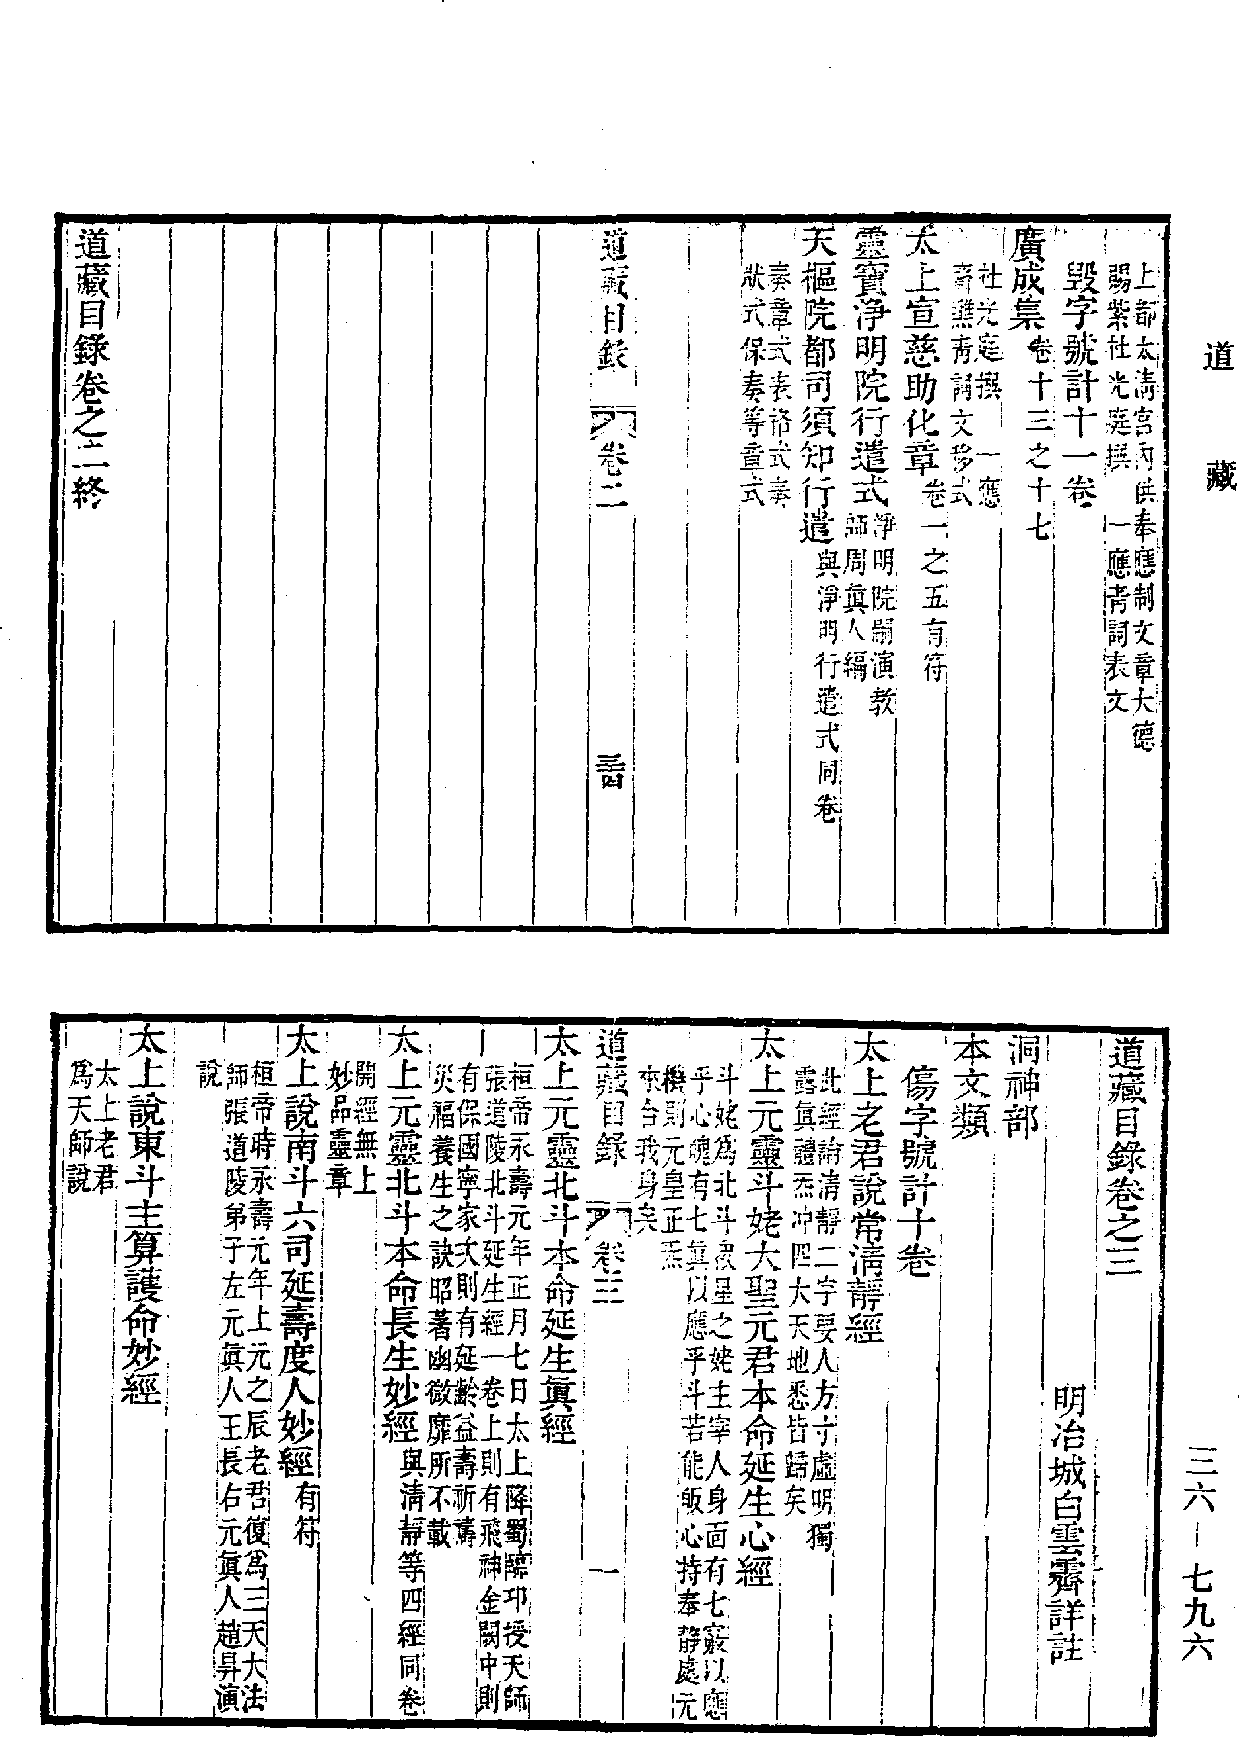 道藏
上都太清宮內供奉應制文章大德
賜紫杜光庭撰 一應青詞表文
毀字號計十一卷
廣成集卷十三之十七
杜光庭撰 一應
齋醮青詞文移式
太上宣慈助化章卷一之五有符
靈寶淨明院行遣式淨明院嗣演教
師周眞人編
天樞院都司須知行遣與淨明行遣式同卷
奏章式表諮式奏
狀式保奏等章式
道藏目錄 卷二
道藏目錄卷之二終
道藏目錄卷之三
明冶城白雲霽詳註
洞神部
本文類
傷字號計十卷
太上老君說常淸靜經
此經論清靜二字要人方寸虛明獨
露眞體炁冲四大天地悉皆歸矣
太上元靈斗姥大聖元君本命延生心經
斗姥爲北斗衆星之姥主宰人身面有七竅以應
乎心魄有七眞以應乎斗若能皈心持奉靜處元
機則元皇正炁
來合我身矣
道藏目錄 卷三 一
太上元靈北斗本命延生眞經
桓帝永壽元年正月七日太上降蜀臨邛授天師
張道陵北斗延生經一卷上則有飛神金闕中則
有保國寧家次則有延齡益壽祈禱
災福養生之訣昭著幽微靡所不載
太上元靈北斗本命長生妙經與淸靜等四經同卷
開經無上
妙品靈章
太上說南斗六司延壽度人妙經有符
桓帝時永壽元年上元之辰老君復爲三天大法
師張道陵弟子左元眞人王長右元眞人趙昇演
說
太上說東斗主算護命妙經
太上老君
爲天師說
三六—七九六